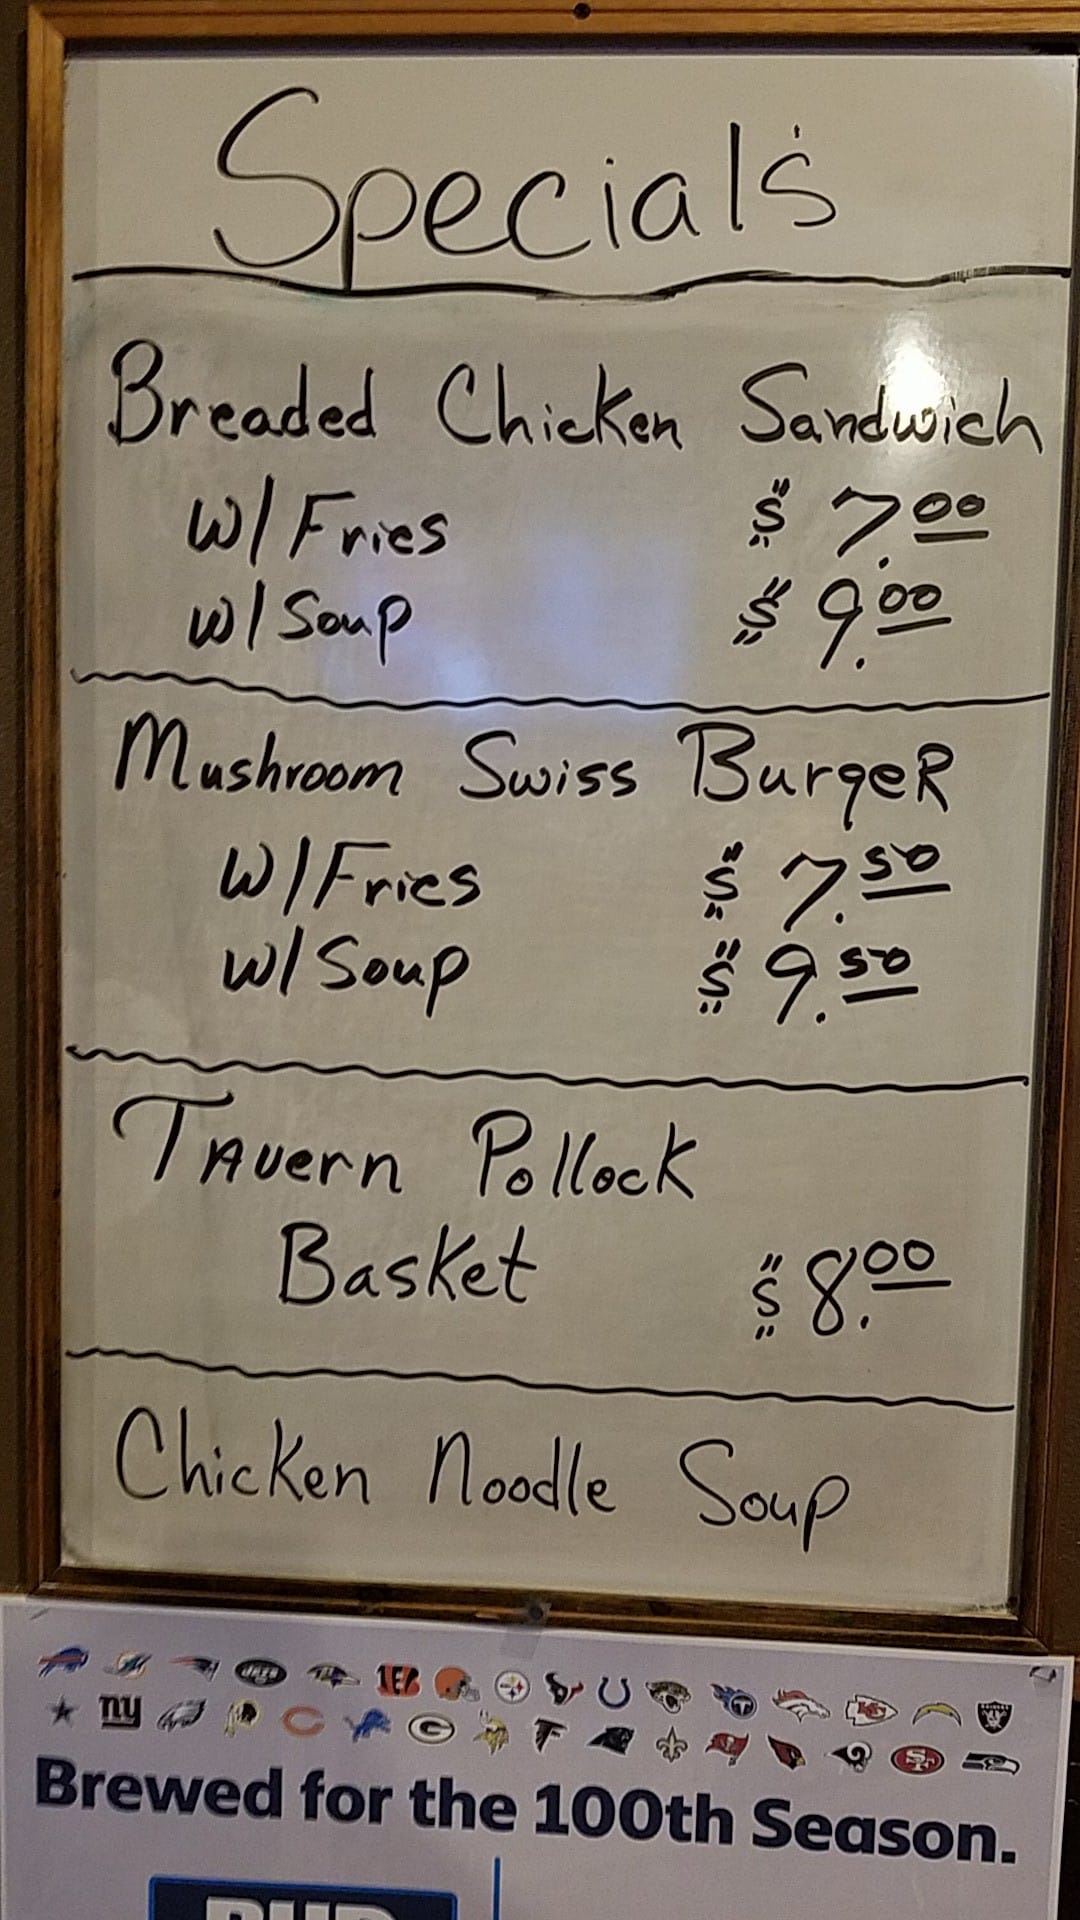 Specials
Breaded Chicken Sandwich
W/Fries $ 7.00
W/Soup $ 9.00
Mushroom Swiss BurgeR
W/Fries $ 7.50
W/Soup $ 9.50
TAvern Pollock
Basket $ 8.00
Chicken Noodle Soup
JETS
NY
Brewed for the 100th Season.
BUD